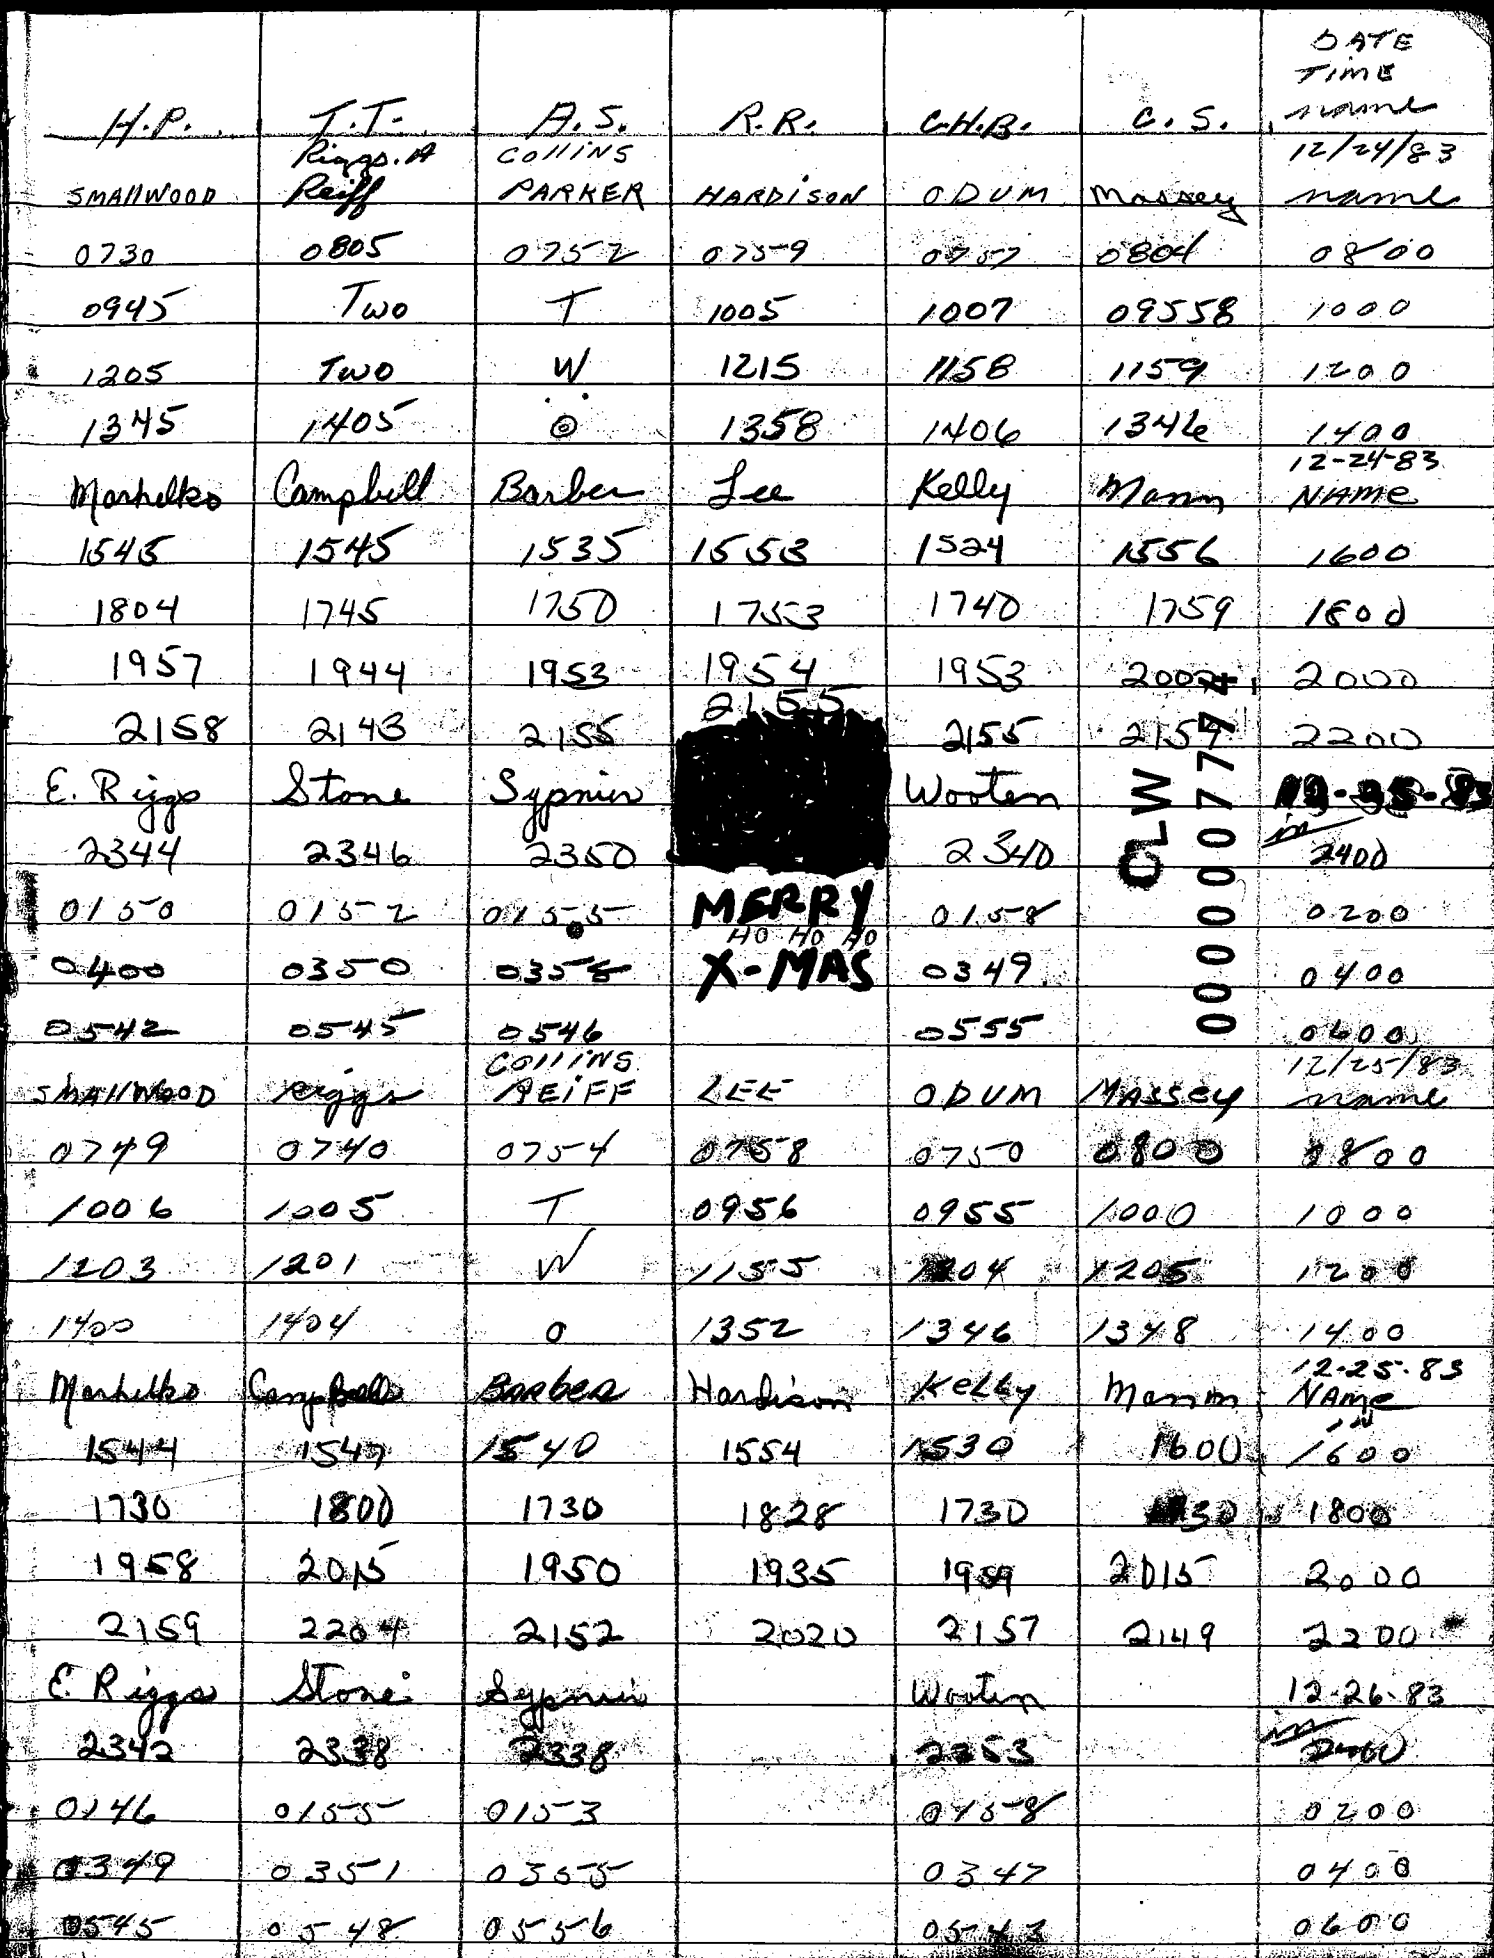 DATE
TIME
H.P. T.T. A.S. R.R. C.H.B. C.S. name
Riggs.A Collins 12/24/83
SMALLWOOD Reiff PARKER HARDISON ODUM Massey name
0730 0805 0752 0759 0757 0804 0800
0945 Two T 1005 1007 09558 1000
1205 Two W 1215 1158 1159 1200
1345 1405 O 1358 1406 1346 1400
12-24-83
Marhelko Campbell Barber Lee Kelly Mann NAME
1545 1545 1535 1553 1524 1556 1600
1804 1745 1750 1753 1740 1759 1800
1957 1944 1953 1954 1953 2002 2000
2158 2143 2155 2155 2155 2159 2200
E. Riggs Stone Sypniew Wooten 12-25-83
2344 2346 2350 2340 2400
0150 0152 0155 MERRY 0158 0200
HO HO HO
0400 0350 0358 X-MAS 0349 0400
0542 0545 0546 0555 0600
CLW
0000007774
Collins 12/25/83
SMALLWOOD Riggs REIFF LEE ODUM MASSEY name
0749 0740 0754 0758 0750 0800 0800
1006 1005 T 0956 0955 1000 1000
1203 1201 W 1155 1204 1205 1200
1400 1404 O 1352 1346 1348 1400
12-25-83
Marhelko Campbell Barber Hardison Kelly Mann NAME
1544 1547 1540 1554 1530 1600 1600
1730 1800 1730 1828 1730 1800
1958 2015 1950 1935 1959 2015 2000
2159 2204 2152 2020 2157 2149 2200
E. Riggs Stone Wooten 12-26-83
2342 2338 2338 2353
0146 0155 0153 0158 0200
0349 0351 0355 0347 0400
0545 0548 0556 0543 0600